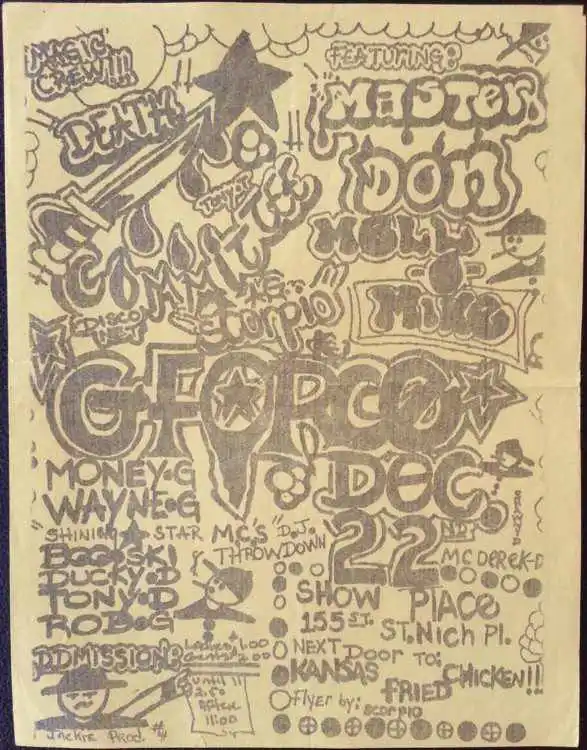 MAGIC
CREW!!!
FEATURING:
"DEATH"
"MASTER
DON
COMMITTEE
MELLO
MIKE
&
SCORPIO
DISCO
NET
G-FORCE
MONEY•G
WAYNE•G
DEC.
22ND
"SHINING STAR M.C.'S"
D.J.
THROWDOWN
MC DEREK-D
BOO•SKI
DUCKY•D
TONY•D
ROB•G
SHOW PLACE
155 ST. ST. Nich Pl.
NEXT Door TO:
KANSAS
FRIED
CHICKEN!!
ADMISSION:
Ladies $1.00
Gents $2.00
until 11
$2.50
AFTER
11:00
Flyer by:
Scorpio
Jackie Prod. #